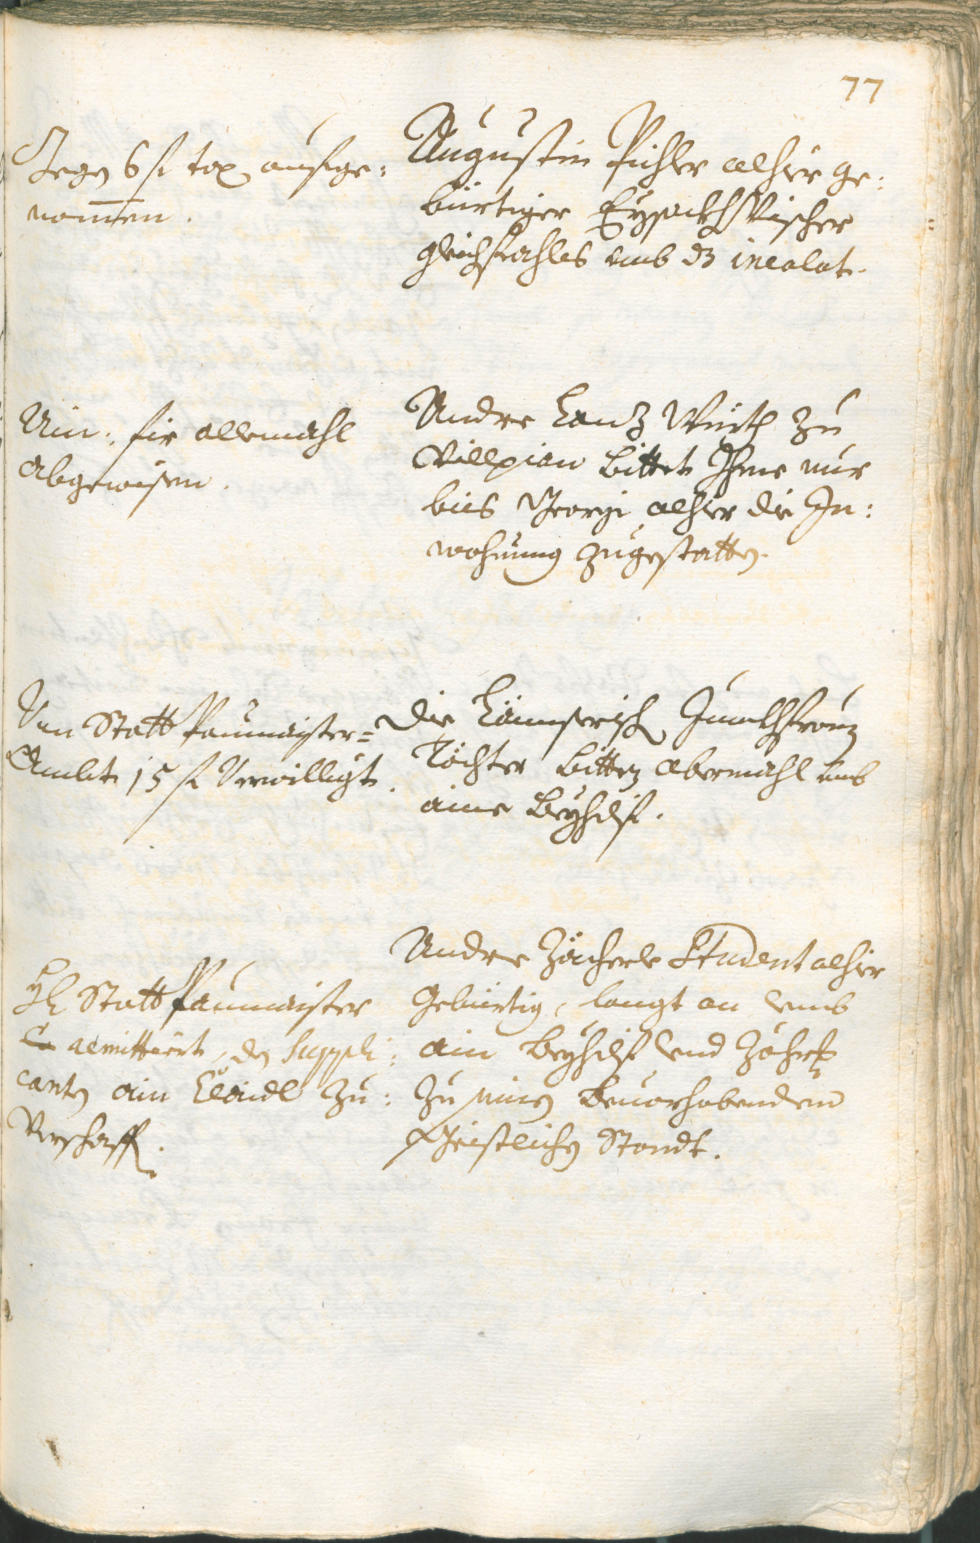 77
Gegen 6 f tax aufge:
nom̅en.
Augustin Pichler alhier ge:
bürtiger Eysackh Vischer
gleichfahls umb dz incolat.
Ain: fir allemahl
abgewisen.
Andre Lanz Würth zu
Villpian bittet Ihme nur
bies Georgi alhier die In:
wohnung zugestatten.
Von Statt Paumaister=
Ambt 15 f verwilligt.
Die
Töchter bitten abermahl umb
aine Beyhilf.
Hr Statt Paumaister
admittiert, den Suppli:
canten ain Claidl zu:
verschaffen.
Andre Zächerle Student alhier
gebürtig, langt an umb
ain Beyhilf und
zu seinen bevorhabendem
Geistlichen Standt.